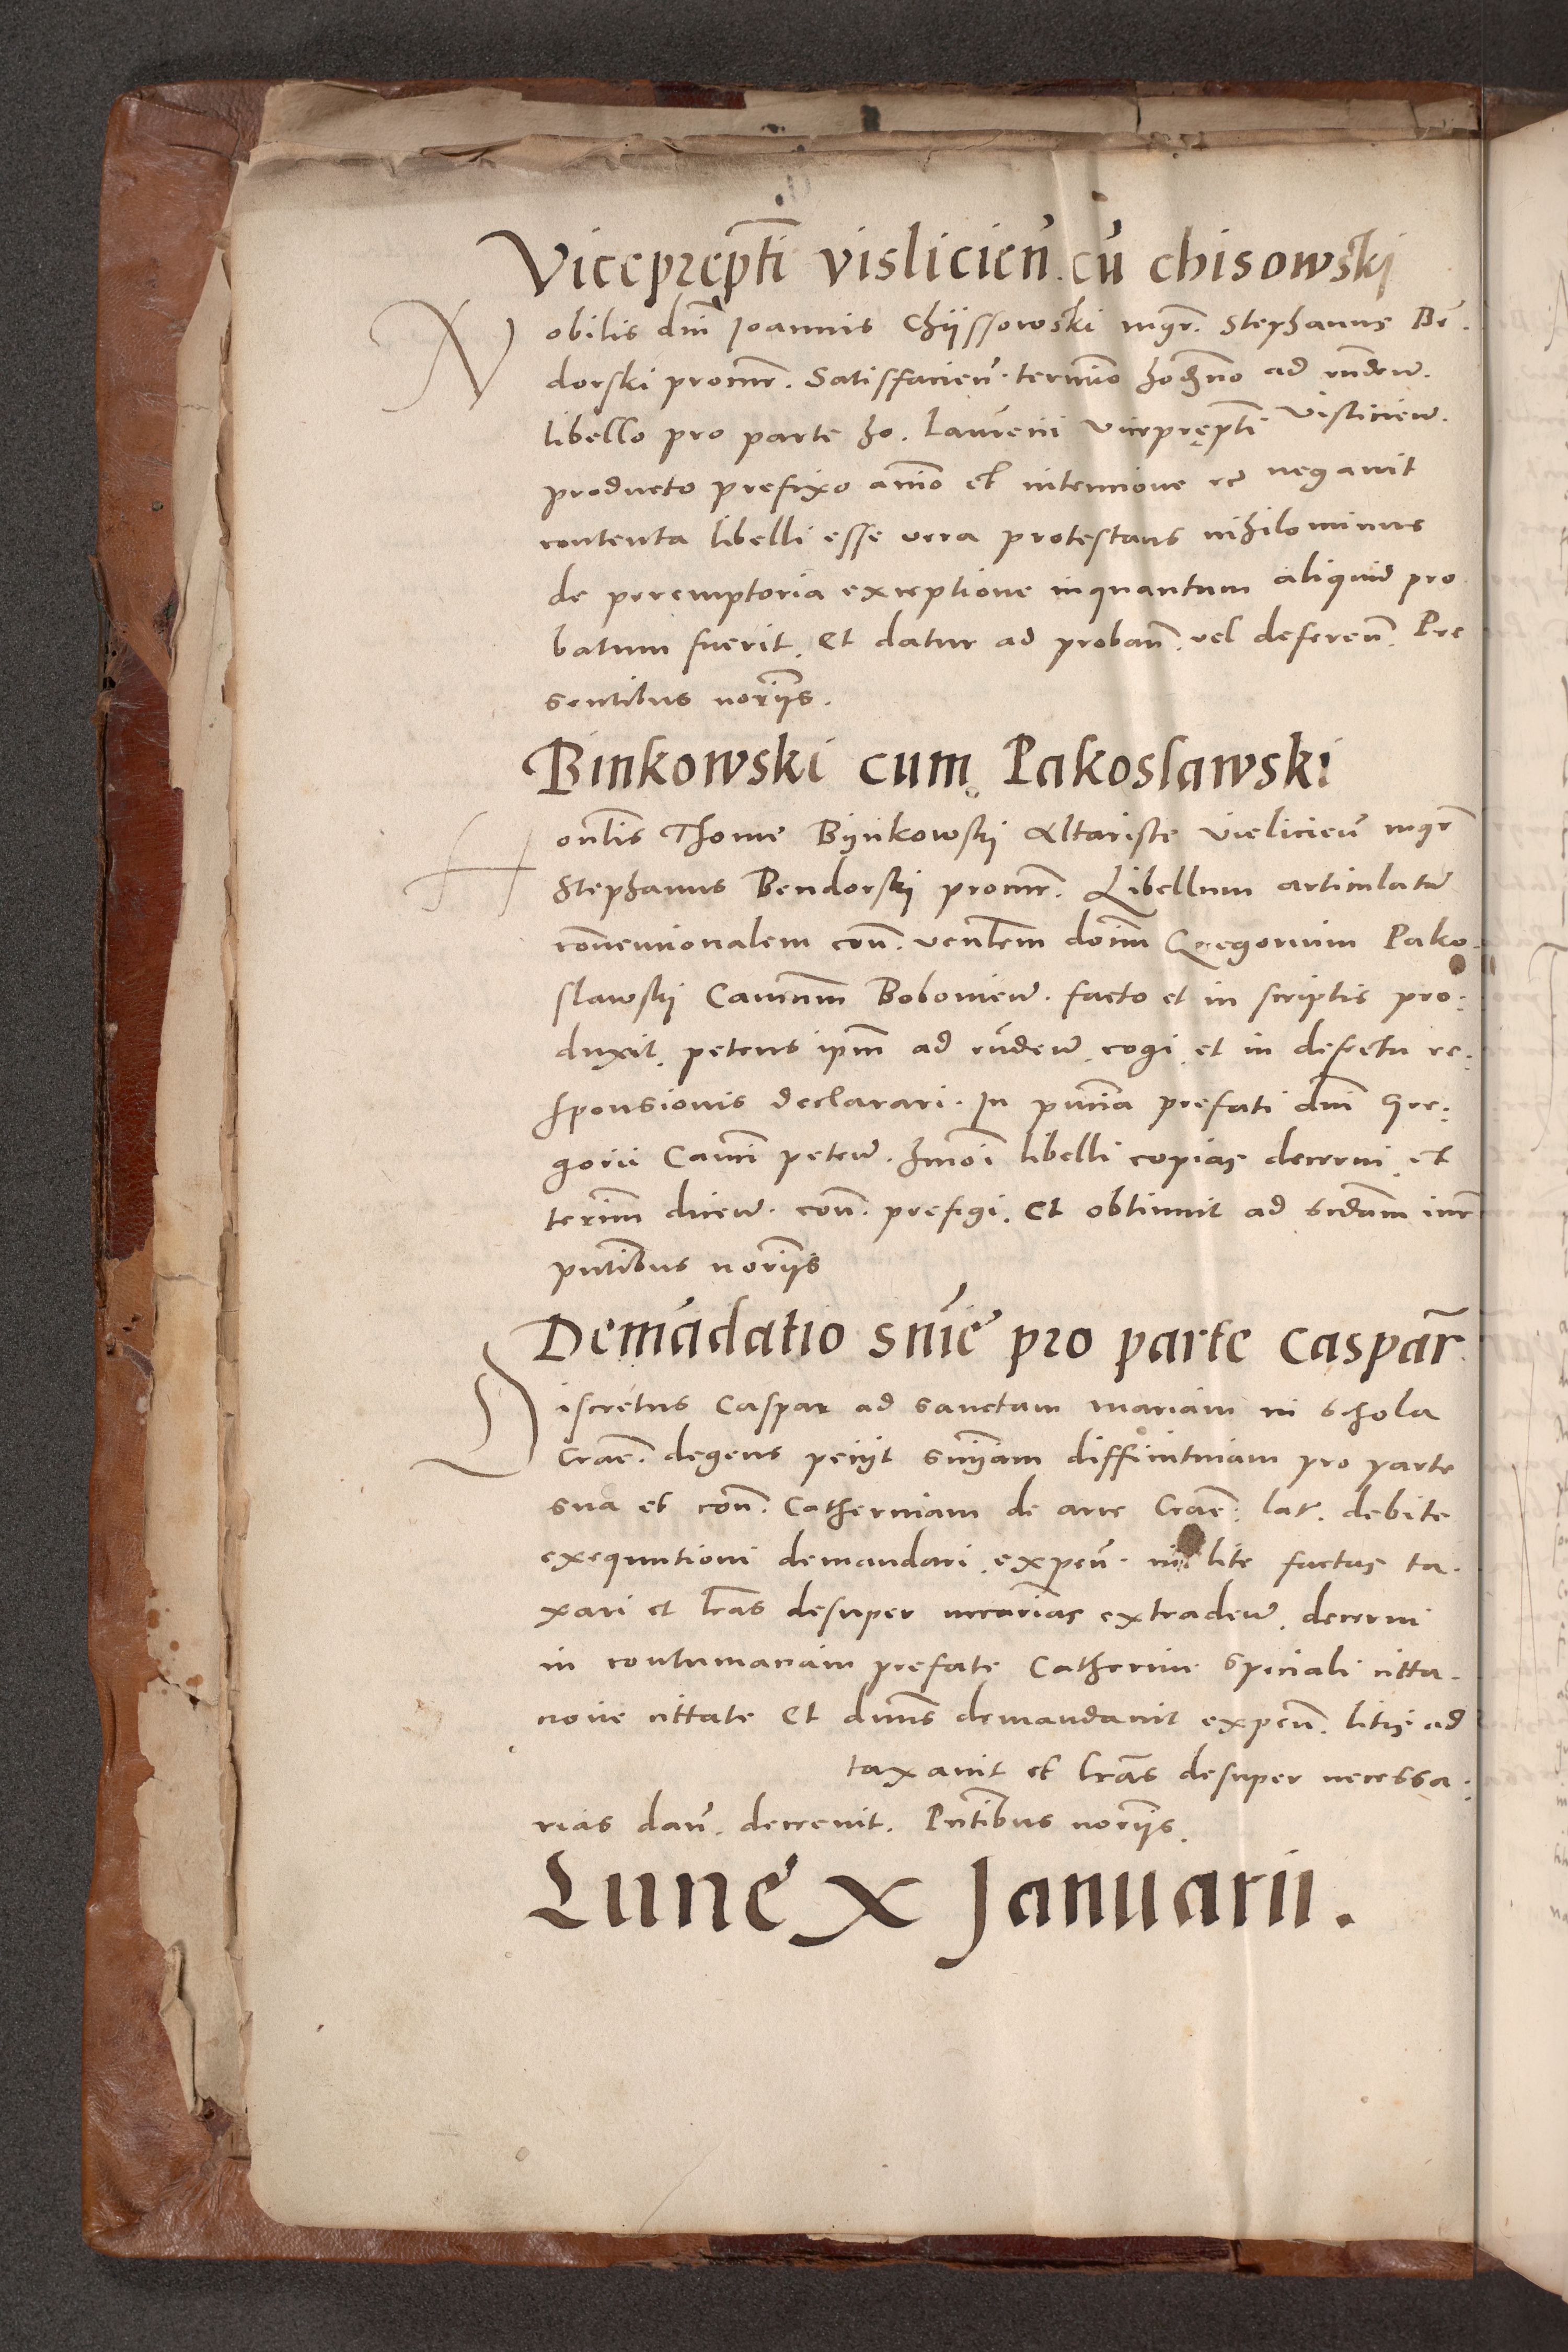 Viceprepti vislicień. cū chisowski
Nobilis dni Ioannis Chyssowski mgr. Stephanus Bē.
dorski procur. Satisfacień. termino hodrno ad rndew.
libello pro parte ho. Laurēcii Viceprepti Visliciew.
producto prefixo animo et intencione rc negavit
contenta libelli esse vera protestans nihilominus
de peremptoria exceptione inquantum aliquid pro
batum fuerit. Et datur ad probań. vel defereń. Pre
sentibus noriis.
Binkowski cum Pakoslawski
Honlis Thome Bynkowsky Altariste Vislicień mgr
Stephanus Bendorsky procur. Libellum articulatū
cōvencionalem coń. venlem domm Gregorium Pako-
slawsky Canncm Bobowiew. facto et in scriptis pro:
duxit. petens ipm ad rndew. cogi et in defectu re:
sponsionis declarari. In pncia prefati dni Gre:
gorii Canci petew. hmoi libelli copias decerni et
terim dicew. coń. prefigi. Et obtinuit ad scdam iur
pntibus noriis
Demādatio snie pro parte Caspar.
Discretus Caspar ad sanctam mariam in schola
Crac. degens peciit sniiam diffinitivam pro parte
sua et coń. Catherinam de arce Crac. lat. debite
exequutioni demandari. expeń. in lite factas ta.
xari et lras desuper necarias extradew. decerni
in contumaciam prefate Catherine speciali citta-
cione cittate Et dnns demandavit expeń. litis ad
taxavit et lras desuper necessa:
rias dań. decrevit. Pntibus noriis.
Lune x Januarii.